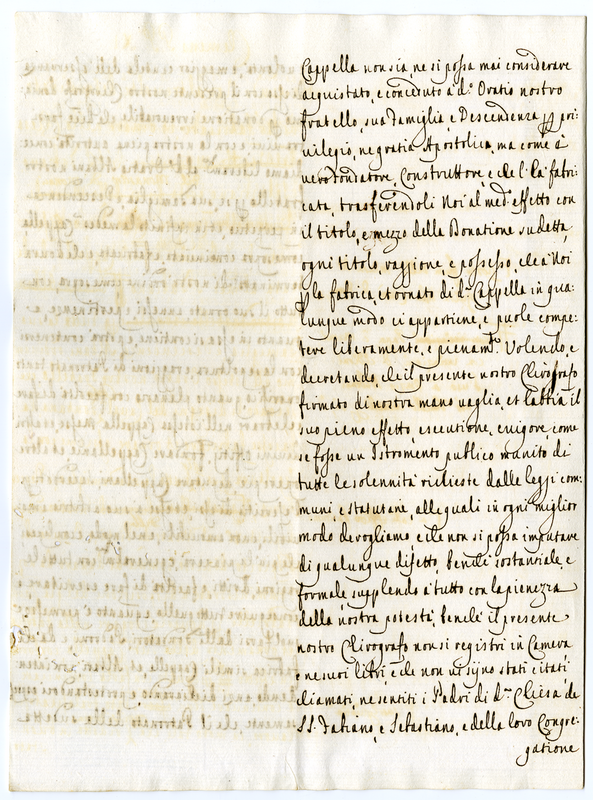 Cappella non sia, ne si possa mai considerare
acquistato, e conceduto à d.º Oratio nostro
fratello, sua famiglia, e Descendenza p pri:
uilegio, ne gratia Apostolica, ma come à
uero fondatore, Construttore, e che l'ha fabri:
cata, trasferendoli Noi al med.º effetto con
il titolo, e mezzo della Donatione sudetta,
ogni titolo, raggione, e possesso, che à Noi
p la fabrica, et ornato di d.ª Cappella in qua:
lunque modo ci appartiene, e puole compe:
tere liberamente, e pienam.te Volendo, e
decretando, che il presente nostro Chirografo
firmato di nostra mano uaglia, et habbia il
suo pieno effetto, esecutione, e uigore, come
se fosse un Istromento publico munito di
tutte le solennità richieste dalle leggi com:
muni, e statutarie, alle quali in ogni miglior
modo deroghiamo e che non si possa imputare
di qualunque difetto, benche sostantiale, e
formale, supplendo à tutto con la pienezza
della nostra potestà, benche il presente
nostro Chirografo non si registri in Camera
e ne suoi libri, e che non ui sijno stati citati,
chiamati, ne sentiti i Padri di d.ª Chiesa de
SS. Fabiano, e Sebastiano, e della loro Congre:
gatione